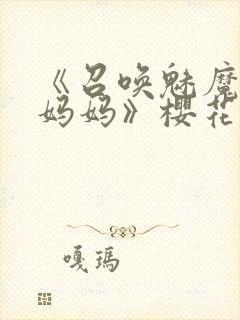 《召唤魅魔
妈妈》樱花
嘎玛